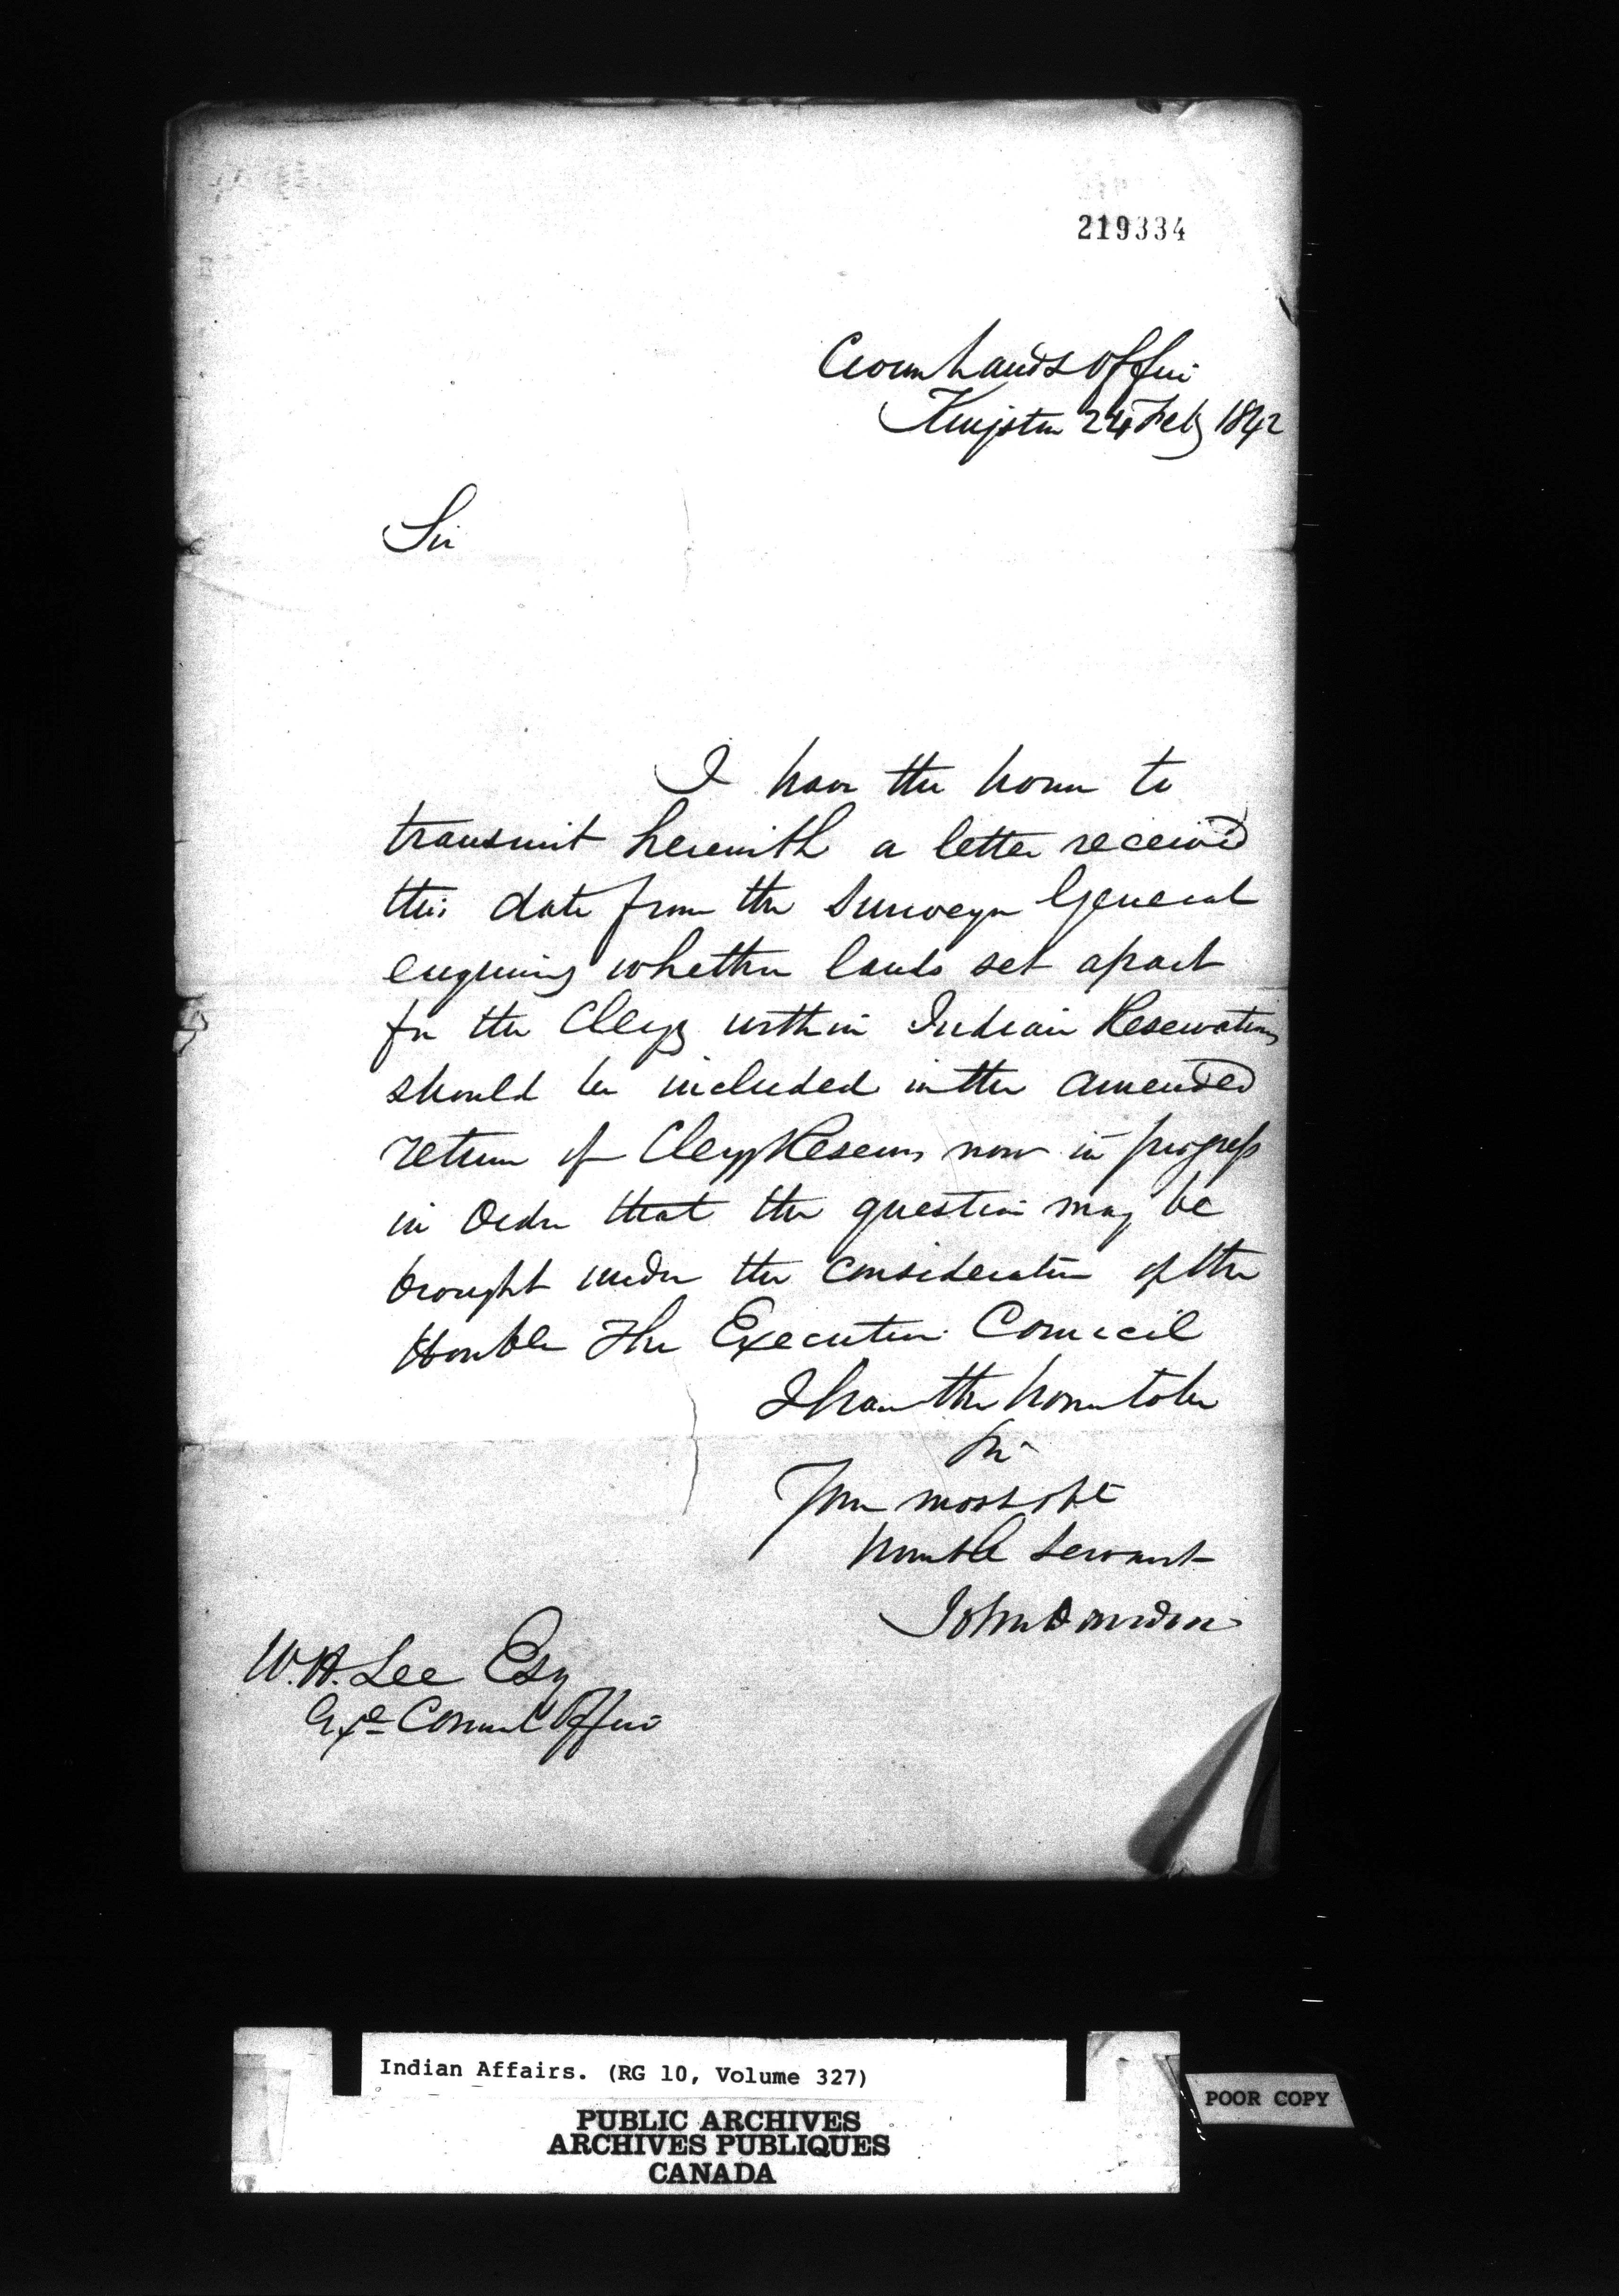 219334
Crown Lands Office
Kingston 24 Feby 1842
Sir
I have the honor to
transmit herewith a letter received
this date from the Surveyor General
enquiring whether lands set apart
for the Clergy within Indian Reservations
should be included in the amended
return of Clergy Reserves now in progress
in Order that the question may be
brought under the consideration of the
Honble The Executive Council
I have the honor to be
Sir
Your most obt
humble Servant
John Davidson
W.H. Lee Esq
Exe Council Office
Indian Affairs. (RG 10, Volume 327)
PUBLIC ARCHIVES
ARCHIVES PUBLIQUES
CANADA
POOR COPY